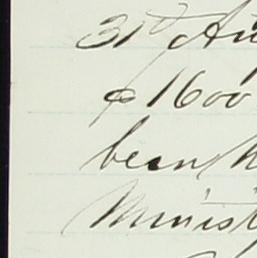 31st Au
$1600
been h
Minist